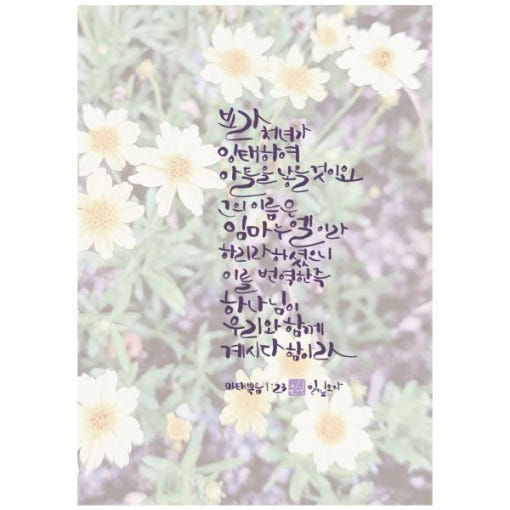 보라 처녀가
잉태하여
아들을 낳을 것이요
그의 이름은
임마누엘이라
하리라 하셨으니
이를 번역한즉
하나님이
우리와 함께
계시다 함이라
마태복음 1:23